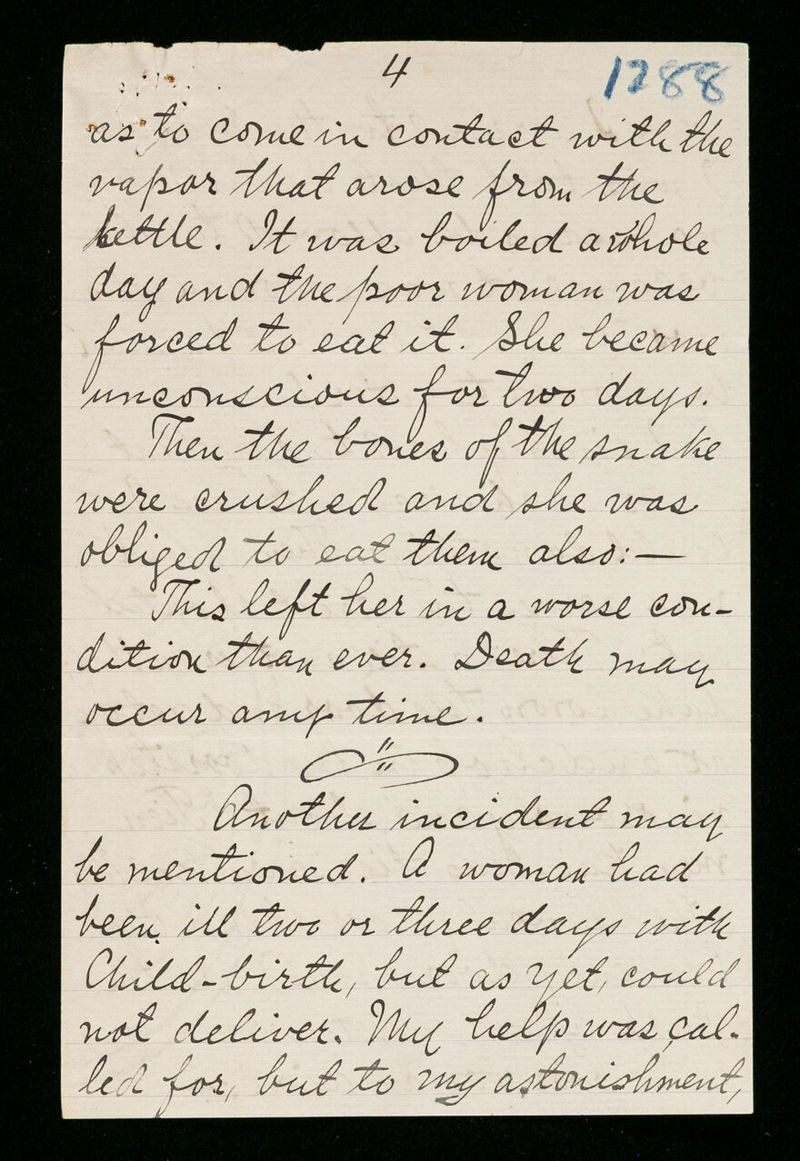 4
1288
as to come in contact with the
vapor that arose from the
kettle. It was boiled a whole
day and the poor woman was
forced to eat it. She became
unconscious for two days.
Then the bones of the snake
were crushed and she was
obliged to eat them also:—
This left her in a worse con-
dition than ever. Death may
occur any time.
Another incident may
be mentioned. A woman had
been ill two or three days with
Child-birth, but as yet, could
not deliver. My help was cal-
led for, but to my astonishment,